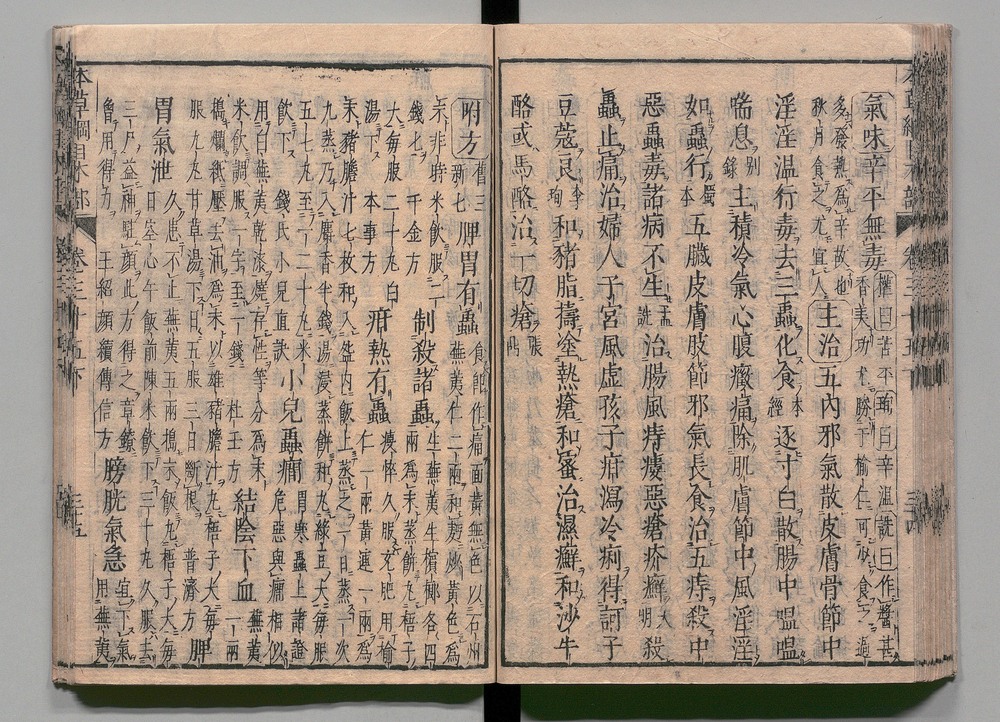 氣味辛平無毒權曰苦平珣曰辛溫詵曰作醬甚香美功尤勝于榆仁可少食之過
多發熱爲辛故也秋月食之尤宜人主治五內邪氣散皮膚骨節中
淫淫溫行毒去三蟲化食本經逐寸白散腸中嗢嗢
喘息別錄主積冷氣心腹癥痛除肌膚節中風淫淫
如蟲行蜀本五臟皮膚肢節邪氣長食治五痔殺中
惡蟲毒諸病不生孟詵治腸風痔瘻惡瘡疥癬大明殺
蟲止痛治婦人子宮風虛孩子疳瀉冷痢得訶子
豆蔻良李珣和豬脂擣塗熱瘡和蜜治濕癬和沙牛
酪或馬酪治一切瘡張鼎
附方舊三新七脾胃有蟲食卽作痛面黃無色以石州蕪荑仁二兩和麪炒黃色爲
末非時米飲服二錢七千金方制殺諸蟲生蕪荑生檳榔各四兩爲末蒸餅丸梧子
大每服二十丸白湯下本事方疳熱有蟲瘦悴久服充肥用榆仁一兩黃連一兩爲
末豬膽汁七枚和入盌內飯上蒸之一日蒸一次
九蒸乃入麝香半錢湯浸蒸餅和丸綠豆大每服
五七丸至一二十丸米飲下錢氏小兒直訣小兒蟲癇胃寒蟲上諸證危惡與癇相似
用白蕪荑乾漆燒存性等分爲末米飲調服一字至一錢杜壬方結陰下血蕪荑一兩
搗爛紙壓去油爲末以雄豬膽汁丸梧子大每
服九丸甘草湯下日五服三日斷根普濟方脾
胃氣泄久患不止蕪荑五兩搗末飯丸梧子大每日空心午飯前陳米飲下三十丸久服去
三尸益神駐顏此方得之章鐐曾用得力王紹顏續傳信方膀胱氣急宜下氣用蕪荑
本草綱目木部